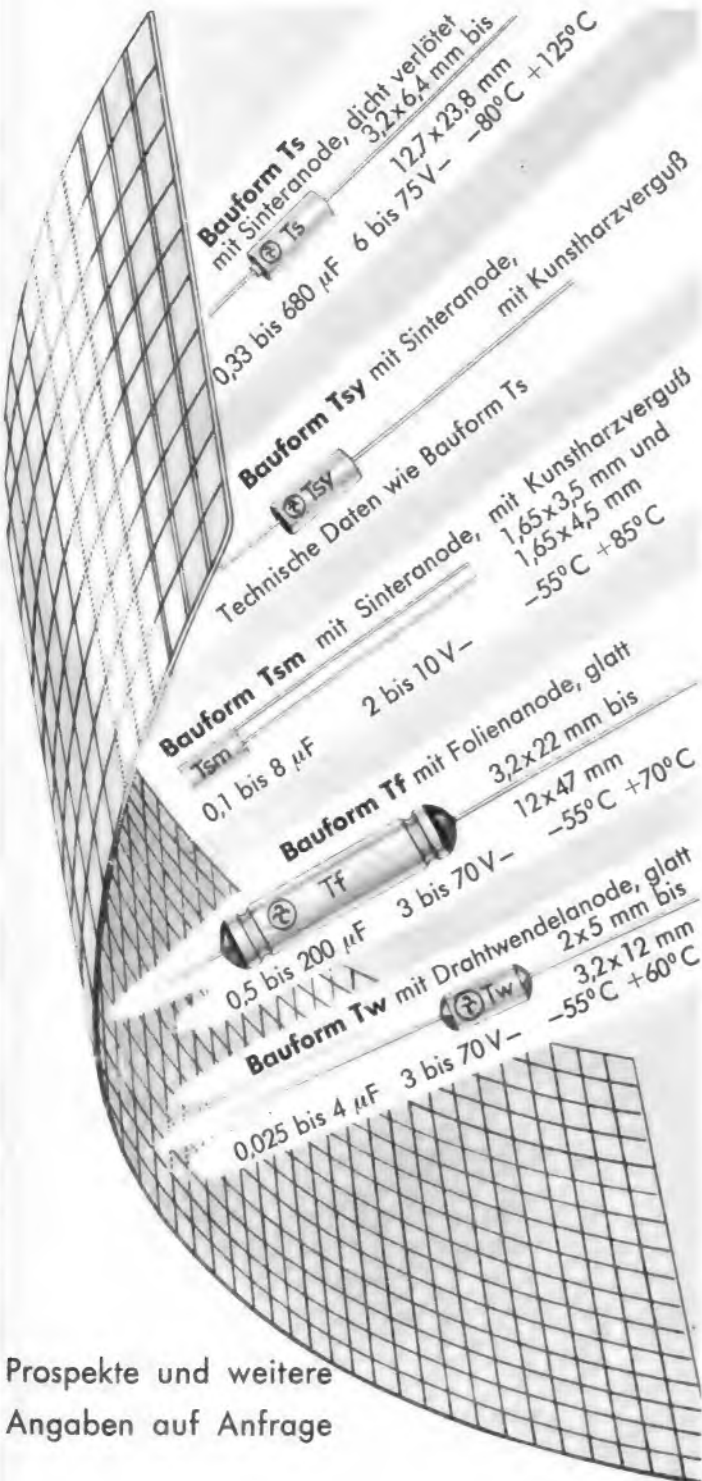 Bauform Ts
mit Sinteranode, dicht verlötet
3,2x6,4 mm bis
12,7x23,8 mm
0,33 bis 680 µF 6 bis 75 V– –80°C +125°C
Ts
Bauform Tsy mit Sinteranode,
mit Kunstharzverguß
Tsy
Technische Daten wie Bauform Ts
Bauform Tsm mit Sinteranode, mit Kunstharzverguß
1,65x3,5 mm und
1,65x4,5 mm
Tsm
0,1 bis 8 µF 2 bis 10 V– –55°C +85°C
Bauform Tf mit Folienanode, glatt
3,2x22 mm bis
12x47 mm
Tf
0,5 bis 200 µF 3 bis 70 V– –55°C +70°C
Bauform Tw mit Drahtwendelanode, glatt
2x5 mm bis
3,2x12 mm
Tw
0,025 bis 4 µF 3 bis 70 V– –55°C +60°C
Prospekte und weitere
Angaben auf Anfrage